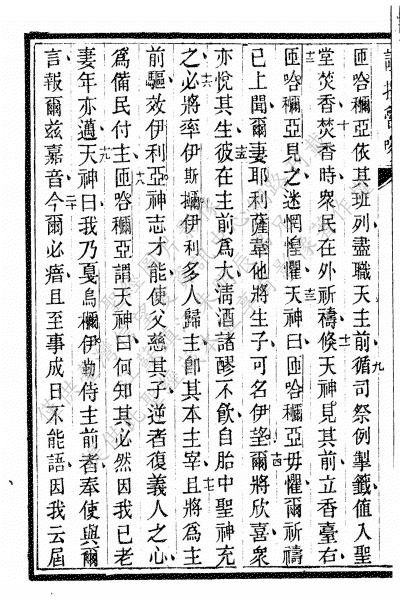 匝咯穪亞依其班列盡職天主前循司祭例掣籤值入聖
堂焚香焚香時衆民在外祈禱倏天神見其前立香臺右
匝咯穪亞見之迷惘惶懼天神曰匝咯穪亞毋懼爾祈禱
已上聞爾妻耶利薩罷他將生子可名伊望爾將欣喜衆
亦悅其生彼在主前爲大淸酒諸醪不飲自胎中聖神充
之必將率伊斯擩伊利多人歸主卽其本主宰且將爲主
前驅效伊利亞神志才能使父慈其子逆者復義人之心
爲備民付主匝咯穪亞謂天神曰何知其必然因我已老
妻年亦邁天神曰我乃戛烏穪伊勒侍主前者奉使與爾
言報爾茲嘉音今爾必瘖且至事成日不能語因我云屆